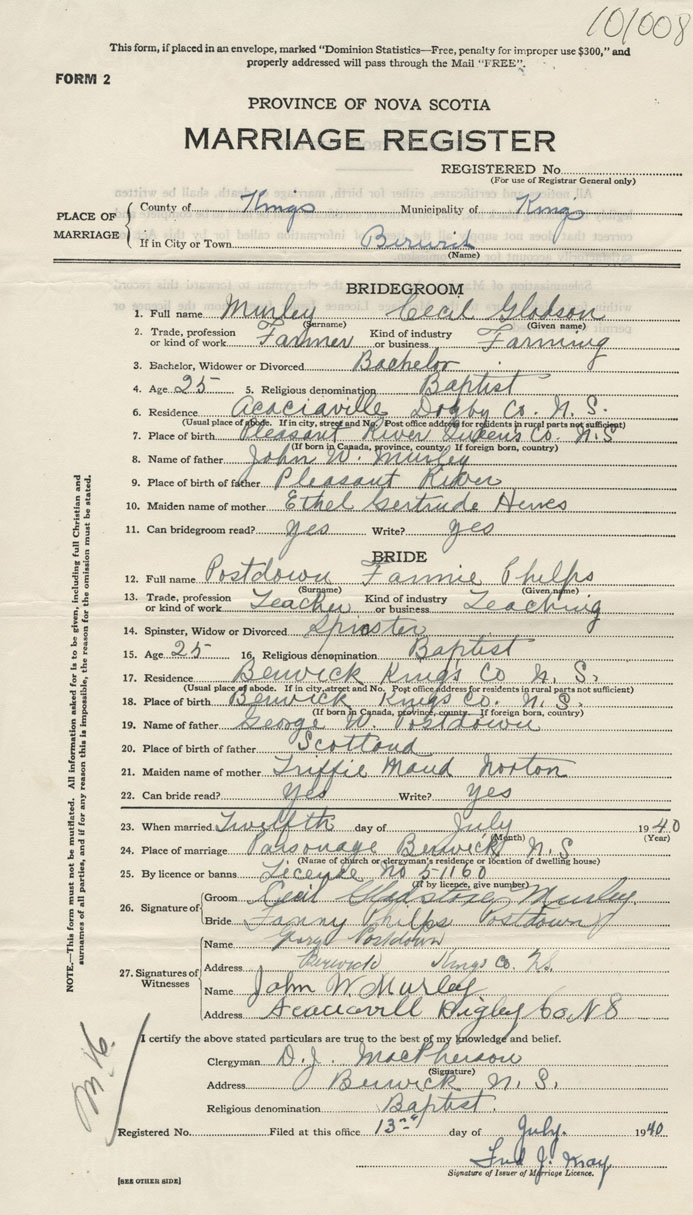 101008
This form, if placed in an envelope, marked "Dominion Statistics—Free, penalty for improper use $300," and
properly addressed will pass through the Mail "FREE".
FORM 2
PROVINCE OF NOVA SCOTIA
MARRIAGE REGISTER
REGISTERED No.
(For use of Registrar General only)
PLACE OF MARRIAGE
County of Kings Municipality of Kings
If in City or Town Berwick
(Name)
BRIDEGROOM
1. Full name Murley Cecil Gladson
(Surname) (Given name)
2. Trade, profession or kind of work Farmer Kind of industry or business Farming
3. Bachelor, Widower or Divorced Bachelor
4. Age 25 5. Religious denomination Baptist
6. Residence Acaciaville Digby Co. N. S.
(Usual place of abode. If in city, street and No. Post office address for residents in rural parts not sufficient)
7. Place of birth Pleasant River Queens Co. N.S
(If born in Canada, province, county. If foreign born, country)
8. Name of father John W. Murley
9. Place of birth of father Pleasant River
10. Maiden name of mother Ethel Gertrude
11. Can bridegroom read? Yes Write? Yes
BRIDE
12. Full name Postdown Fannie Phelps
(Surname) (Given name)
13. Trade, profession or kind of work Teacher Kind of industry or business Teaching
14. Spinster, Widow or Divorced Spinster
15. Age 25 16. Religious denomination Baptist
17. Residence Berwick Kings Co N. S.
(Usual place of abode. If in city, street and No. Post office address for residents in rural parts not sufficient)
18. Place of birth Berwick Kings Co. N. S.
(If born in Canada, province, county. If foreign born, country)
19. Name of father George W. Postdown
20. Place of birth of father Scotland
21. Maiden name of mother Triffie Maud Norton
22. Can bride read? Yes Write? Yes
23. When married Twelfth day of July 1940
(Month) (Year)
24. Place of marriage Parsonage Berwick N. S
(Name of church or clergyman's residence or location of dwelling house)
25. By licence or banns License No 51160
(If by licence, give number)
26. Signature of
Groom Cecil Gladstone Murley
Bride Fanny Phelps Postdown
27. Signatures of Witnesses
Name Postdown
Address Berwick Kings Co. N.S.
Name John W Murley
Address Acaciavill Digby Co N S
I certify the above stated particulars are true to the best of my knowledge and belief.
Clergyman D. J. MacPherson
(Signature)
Address Berwick N. S.
Religious denomination Baptist.
Registered No. Filed at this office 13 day of July. 1940
Fred J.
Signature of Issuer of Marriage Licence.
[SEE OTHER SIDE]
NOTE.—This form must not be mutilated. All information asked for is to be given, including full Christian and
surnames of all parties, and if for any reason this is impossible, the reason for the omission must be stated.